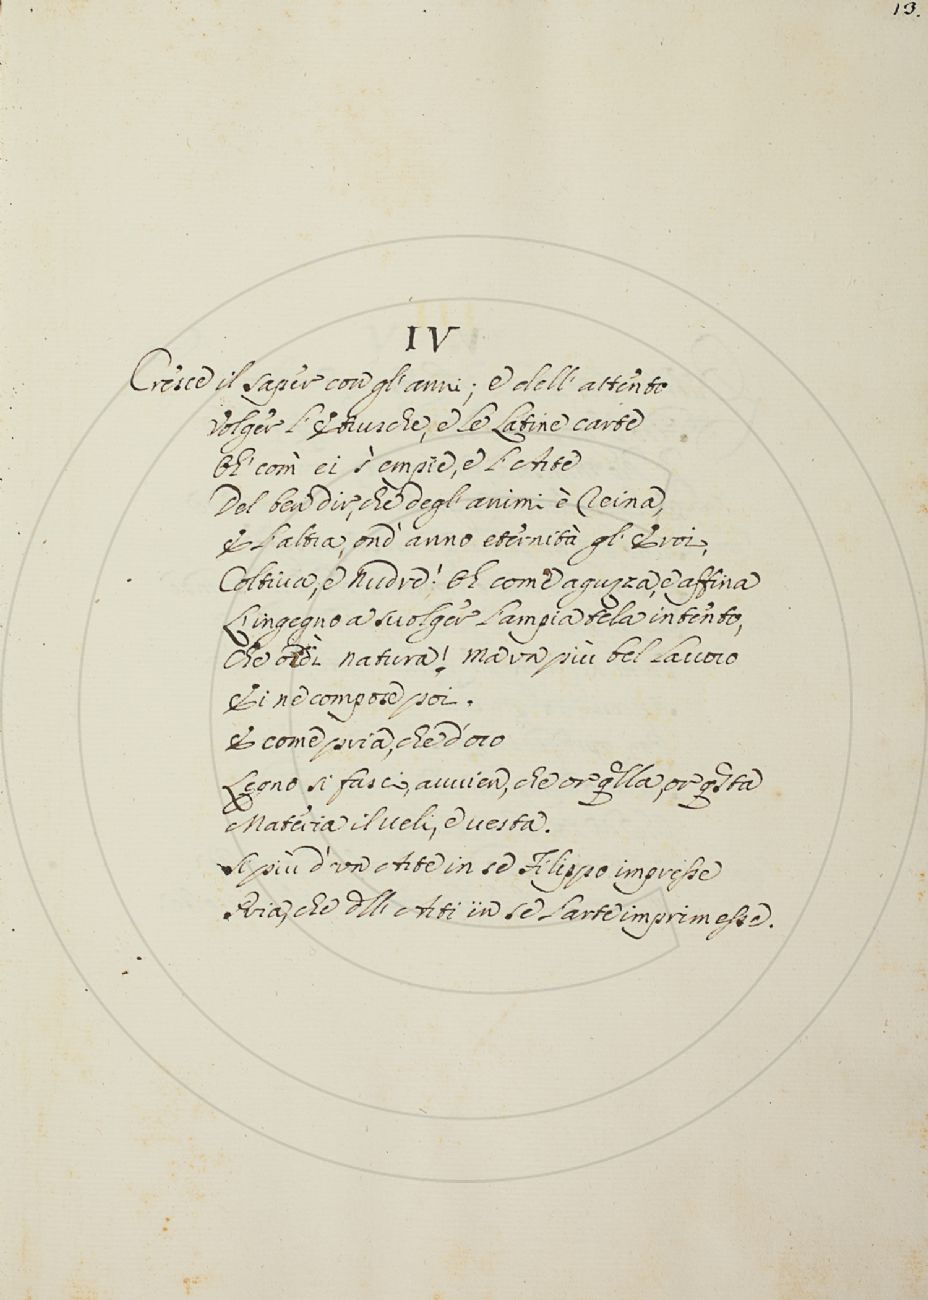 13.
IV
Cresce il saper con gl'anni; e dell'attento
volger l'Etrusche, e le Latine carte
Oh' com' ei s'empie, e l'Arte
Del ben dir, che degl'animi è Reina,
E l'altra, ond' anno eternità gl'Eroi,
Coltiva, e nudre! Oh come aguzza, e affina
L'ingegno a svolger l'ampia tela intento,
Che ordì natura! Ma vn più bel lavoro
Ei ne compose poi.
E come pria, che d'oro
Legno si fasci, avvien, che or qlla, or qsta
Materia il veli, e vesta.
Sì più d'vn Arte in se Filippo impresse
Pria, che dll' Arti in se l'arte imprimesse.